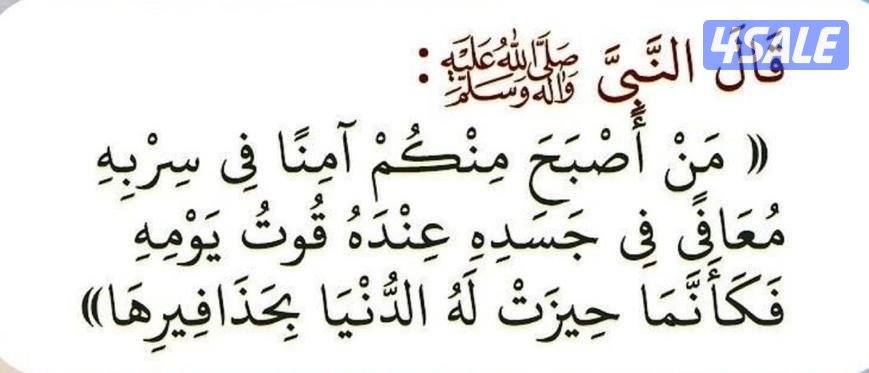 4SALE
قَالَ النَّبِىَّ صَلَّى اللهُ عَلَيْهِ وَآلِهِ وَسَلَّمَ :
(( مَنْ أَصْبَحَ مِنْكُمْ آمِنًا فِى سِرْبِهِ
مُعَافًى فِى جَسَدِهِ عِنْدَهُ قُوتُ يَوْمِهِ
فَكَأَنَّمَا حِيزَتْ لَهُ الدُّنْيَا بِحَذَافِيرِهَا))